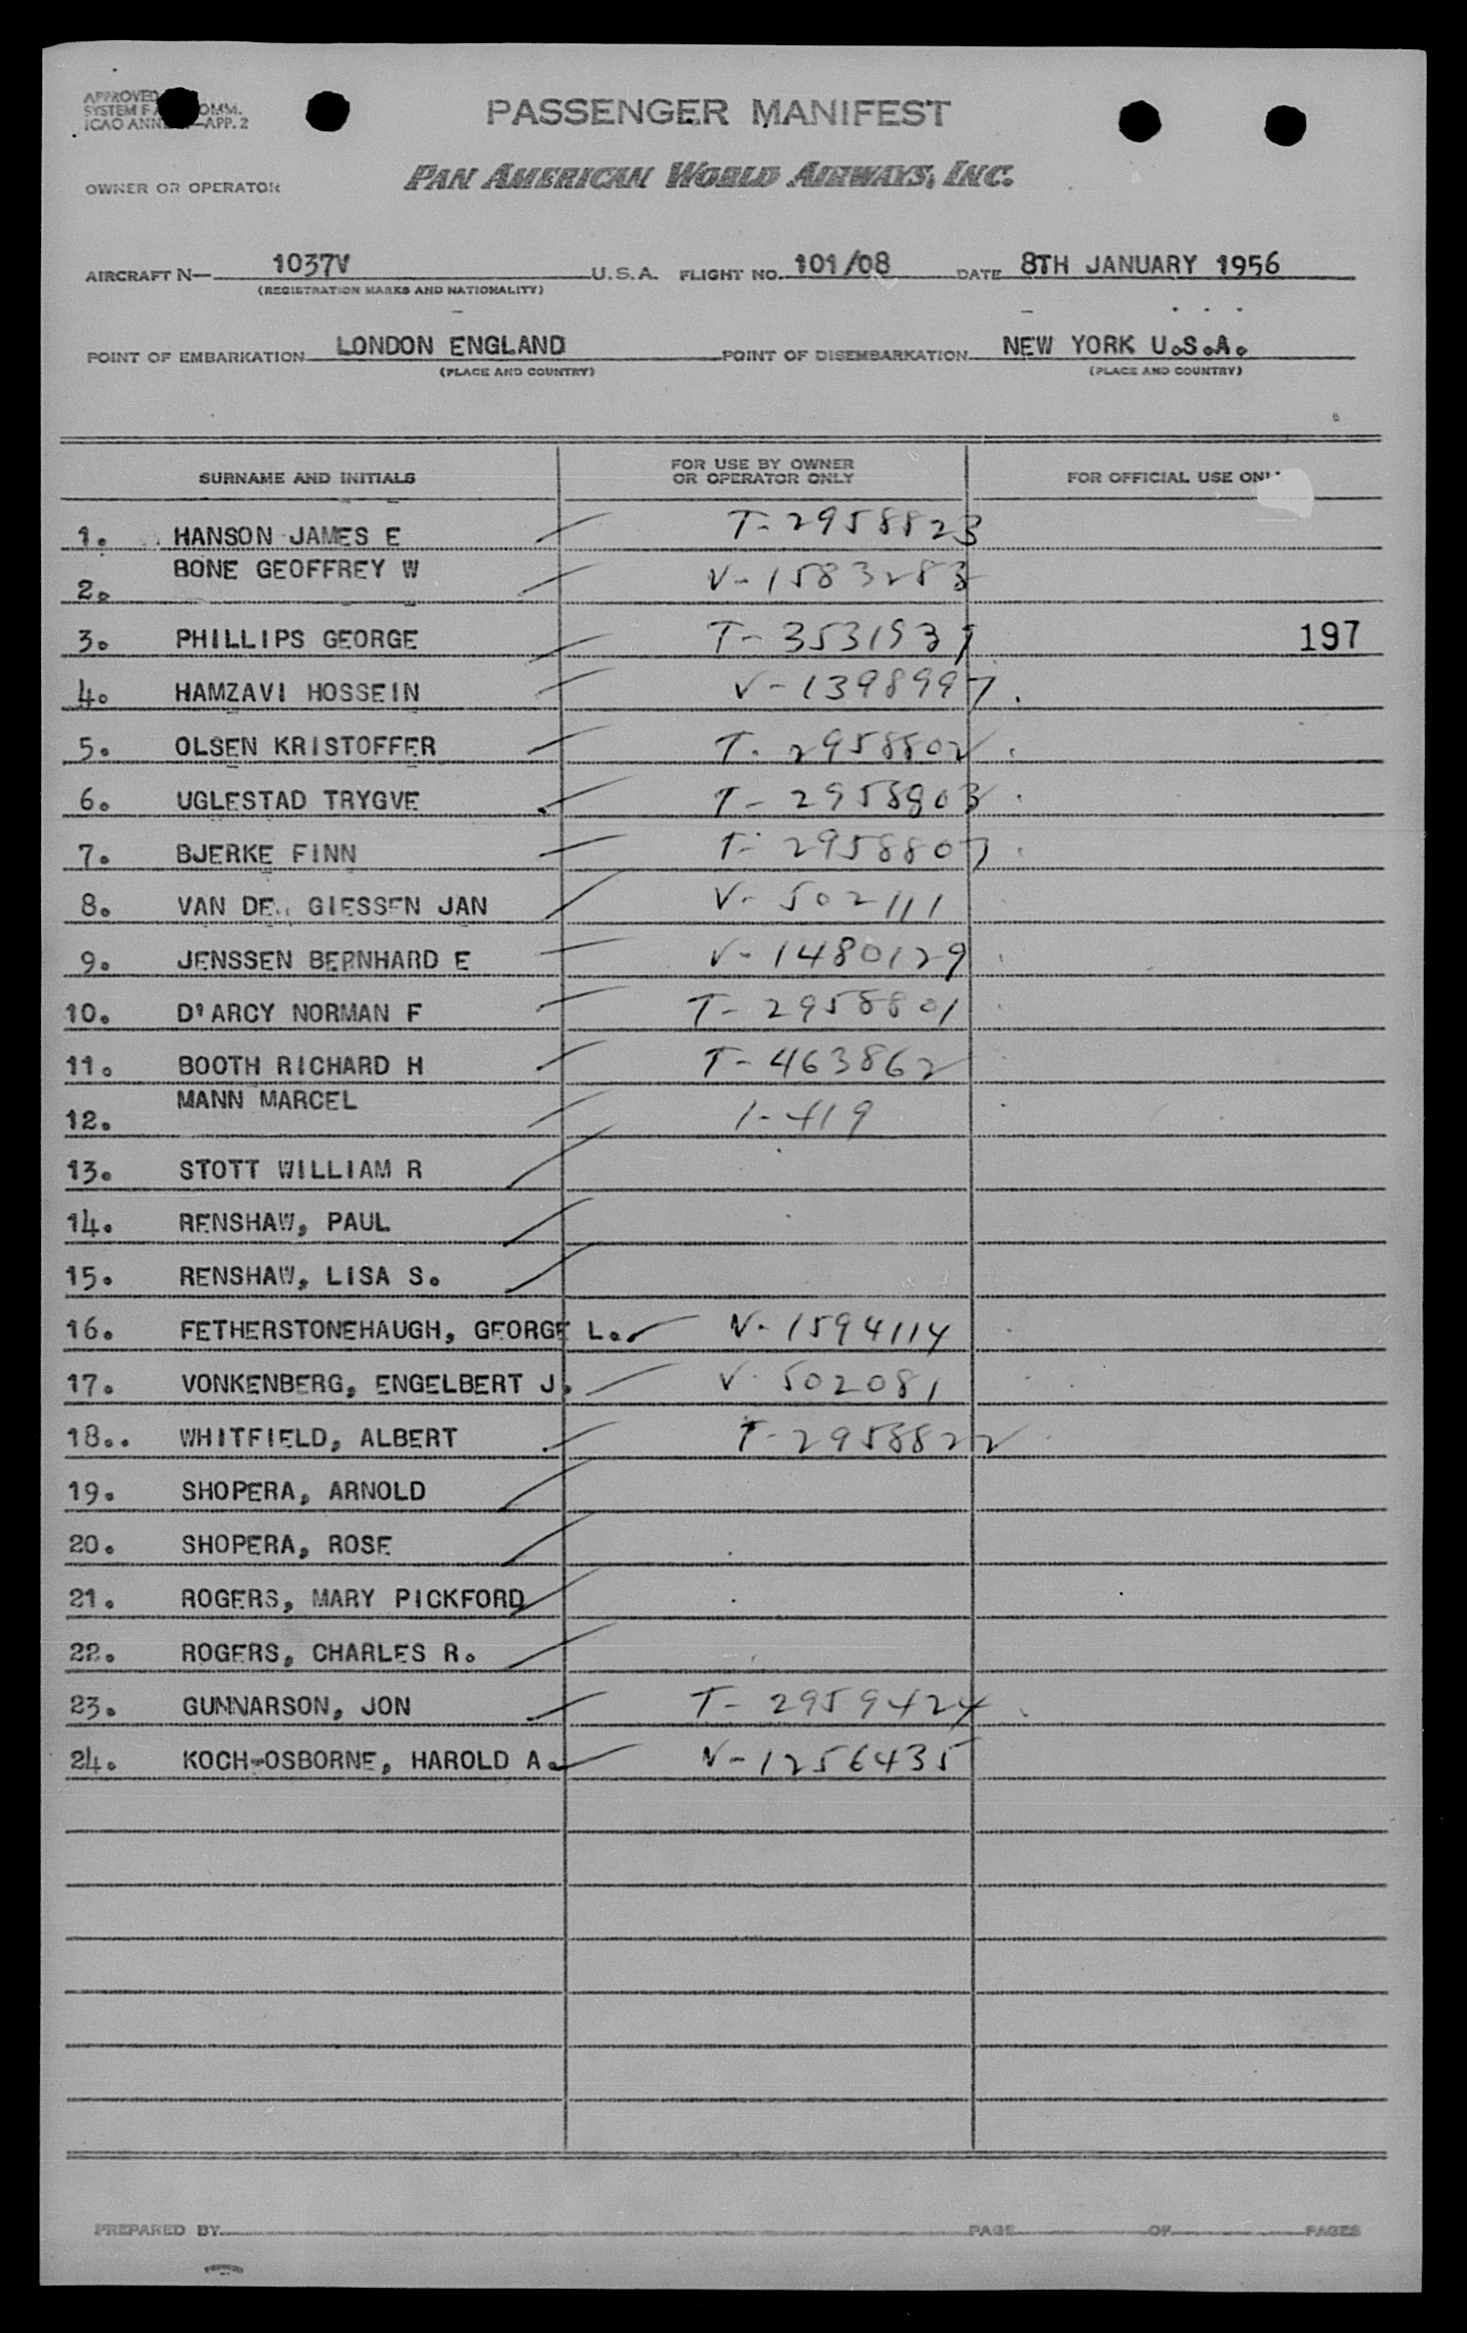 APPROVED
SYSTEM OMM.
ICAO APP. 2
PASSENGER MANIFEST
OWNER OR OPERATOR PAN AMERICAN WORLD AIRWAYS, INC.
AIRCRAFT N— 1037V U.S.A. FLIGHT NO. 101/08 DATE 8TH JANUARY 1956
(REGISTRATION MARKS AND NATIONALITY)
POINT OF EMBARKATION LONDON ENGLAND POINT OF DISEMBARKATION NEW YORK U.S.A.
(PLACE AND COUNTRY) (PLACE AND COUNTRY)
SURNAME AND INITIALS FOR USE BY OWNER OR OPERATOR ONLY FOR OFFICIAL USE ONLY
1. HANSON JAMES E T-2958823
2. BONE GEOFFREY W V-1583283
3. PHILLIPS GEORGE T-3531931 197
4. HAMZAVI HOSSEIN V-1398997
5. OLSEN KRISTOFFER T-2958802
6. UGLESTAD TRYGVE T-2958803
7. BJERKE FINN T-2958807
8. VAN DE GIESSEN JAN V-502111
9. JENSSEN BERNHARD E V-1480129
10. D'ARCY NORMAN F T-2958801
11. BOOTH RICHARD H T-463862
12. MANN MARCEL 1-419
13. STOTT WILLIAM R
14. RENSHAW, PAUL
15. RENSHAW, LISA S.
16. FETHERSTONEHAUGH, GEORGE L. V-1594114
17. VONKENBERG, ENGELBERT J. V-502081
18.. WHITFIELD, ALBERT T-2958822
19. SHOPERA, ARNOLD
20. SHOPERA, ROSE
21. ROGERS, MARY PICKFORD
22. ROGERS, CHARLES R.
23. GUNNARSON, JON T-2959424
24. KOCH-OSBORNE, HAROLD A. V-1256435
PREPARED BY PAGE OF PAGES